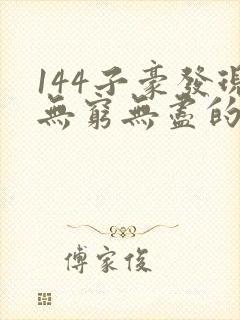 144子豪發現
無窮無盡的
傅家俊